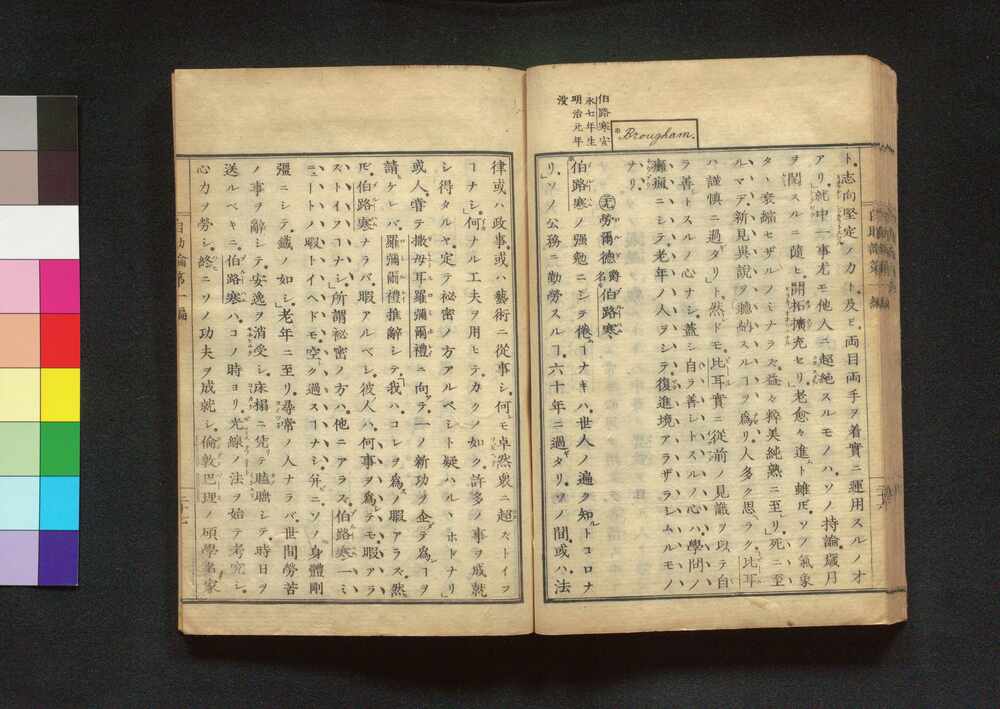 伯路寒安
永七年生
明治元年
没
Brougham.
ト、志向堅定ノカト及ビ、両目両手ヲ着實ニ運用スルノオ
アリ、就中一事尤モ他人ニ超絶スルモノハ、ソノ持論歳月
ヲ閲スルニ随ヒ、開拓擴充セリ、老愈々進ト雖𪜈、ソノ氣象
タヽ衰縮セザルノミナラズ、益々粹美純熟ニ至リ、死ニ至
ルマデ、新見異説ヲ聽納スルヿヲ爲リ、人多ク思ラク、比耳
ハ謹慎ニ過タリト、然ドモ、比耳實ニ從前ノ見識ヲ以テ自
ラ善トスルノ心ナシ、蓋シ自ラ善シトスルノ心ハ、學問ノ
癱瘋ニシテ、老年ノ人ヲシテ、復進境アラザラシムルモノ
ナリ、
勞爾德爵名伯路寒、
伯路寒ノ强勉ニシテ倦ヿナキハ、世人ノ遍ク知トコロナ
リ、ソノ公務ニ勤勞スルヿ、六十年ニ過タリ、ソノ間、或ハ法
律或ハ政事、或ハ藝術ニ從事シ、何モ卓然衆ニ超ズトイフ
ヿナシ、何ナル工夫ヲ用ヒテ、カクノ如ク、許多ノ事ヲ成就
シ得タルヤ、定テ祕密ノ方アルベシト疑ハルヽホドナリ、
或人、嘗テ撒母耳羅彌爾禮ニ向テ、一ノ新功ヲ企テ爲ヿヲ
請ケレバ、羅彌爾禮推辭シテ、我ハコレヲ爲ス暇アラズ、然
𪜈、伯路寒ナラバ、暇アルベシ、彼人ハ何事ヲ爲テモ、暇アラ
ズトイフヿナシ、所謂祕密ノ方ハ他ニアラズ、伯路寒一ミ
ニュートノ暇トイヘドモ、空ク過スヿナシ、幷ニソノ身體剛
彊ニシテ、鐵ノ如シ、老年ニ至リ、尋常ノ人ナラバ、世間勞苦
ノ事ヲ辭シテ、安逸ヲ消受シ、床榻ニ凭リテ瞌睡シテ、時日ヲ
送ルベキニ、伯路寒ハ、コノ時ヨリ、光線ノ法ヲ始テ考究シ、
心力ヲ勞シ、終ニソノ功夫ヲ成就シ、倫敦巴理ノ碩學名家
自助論第一編